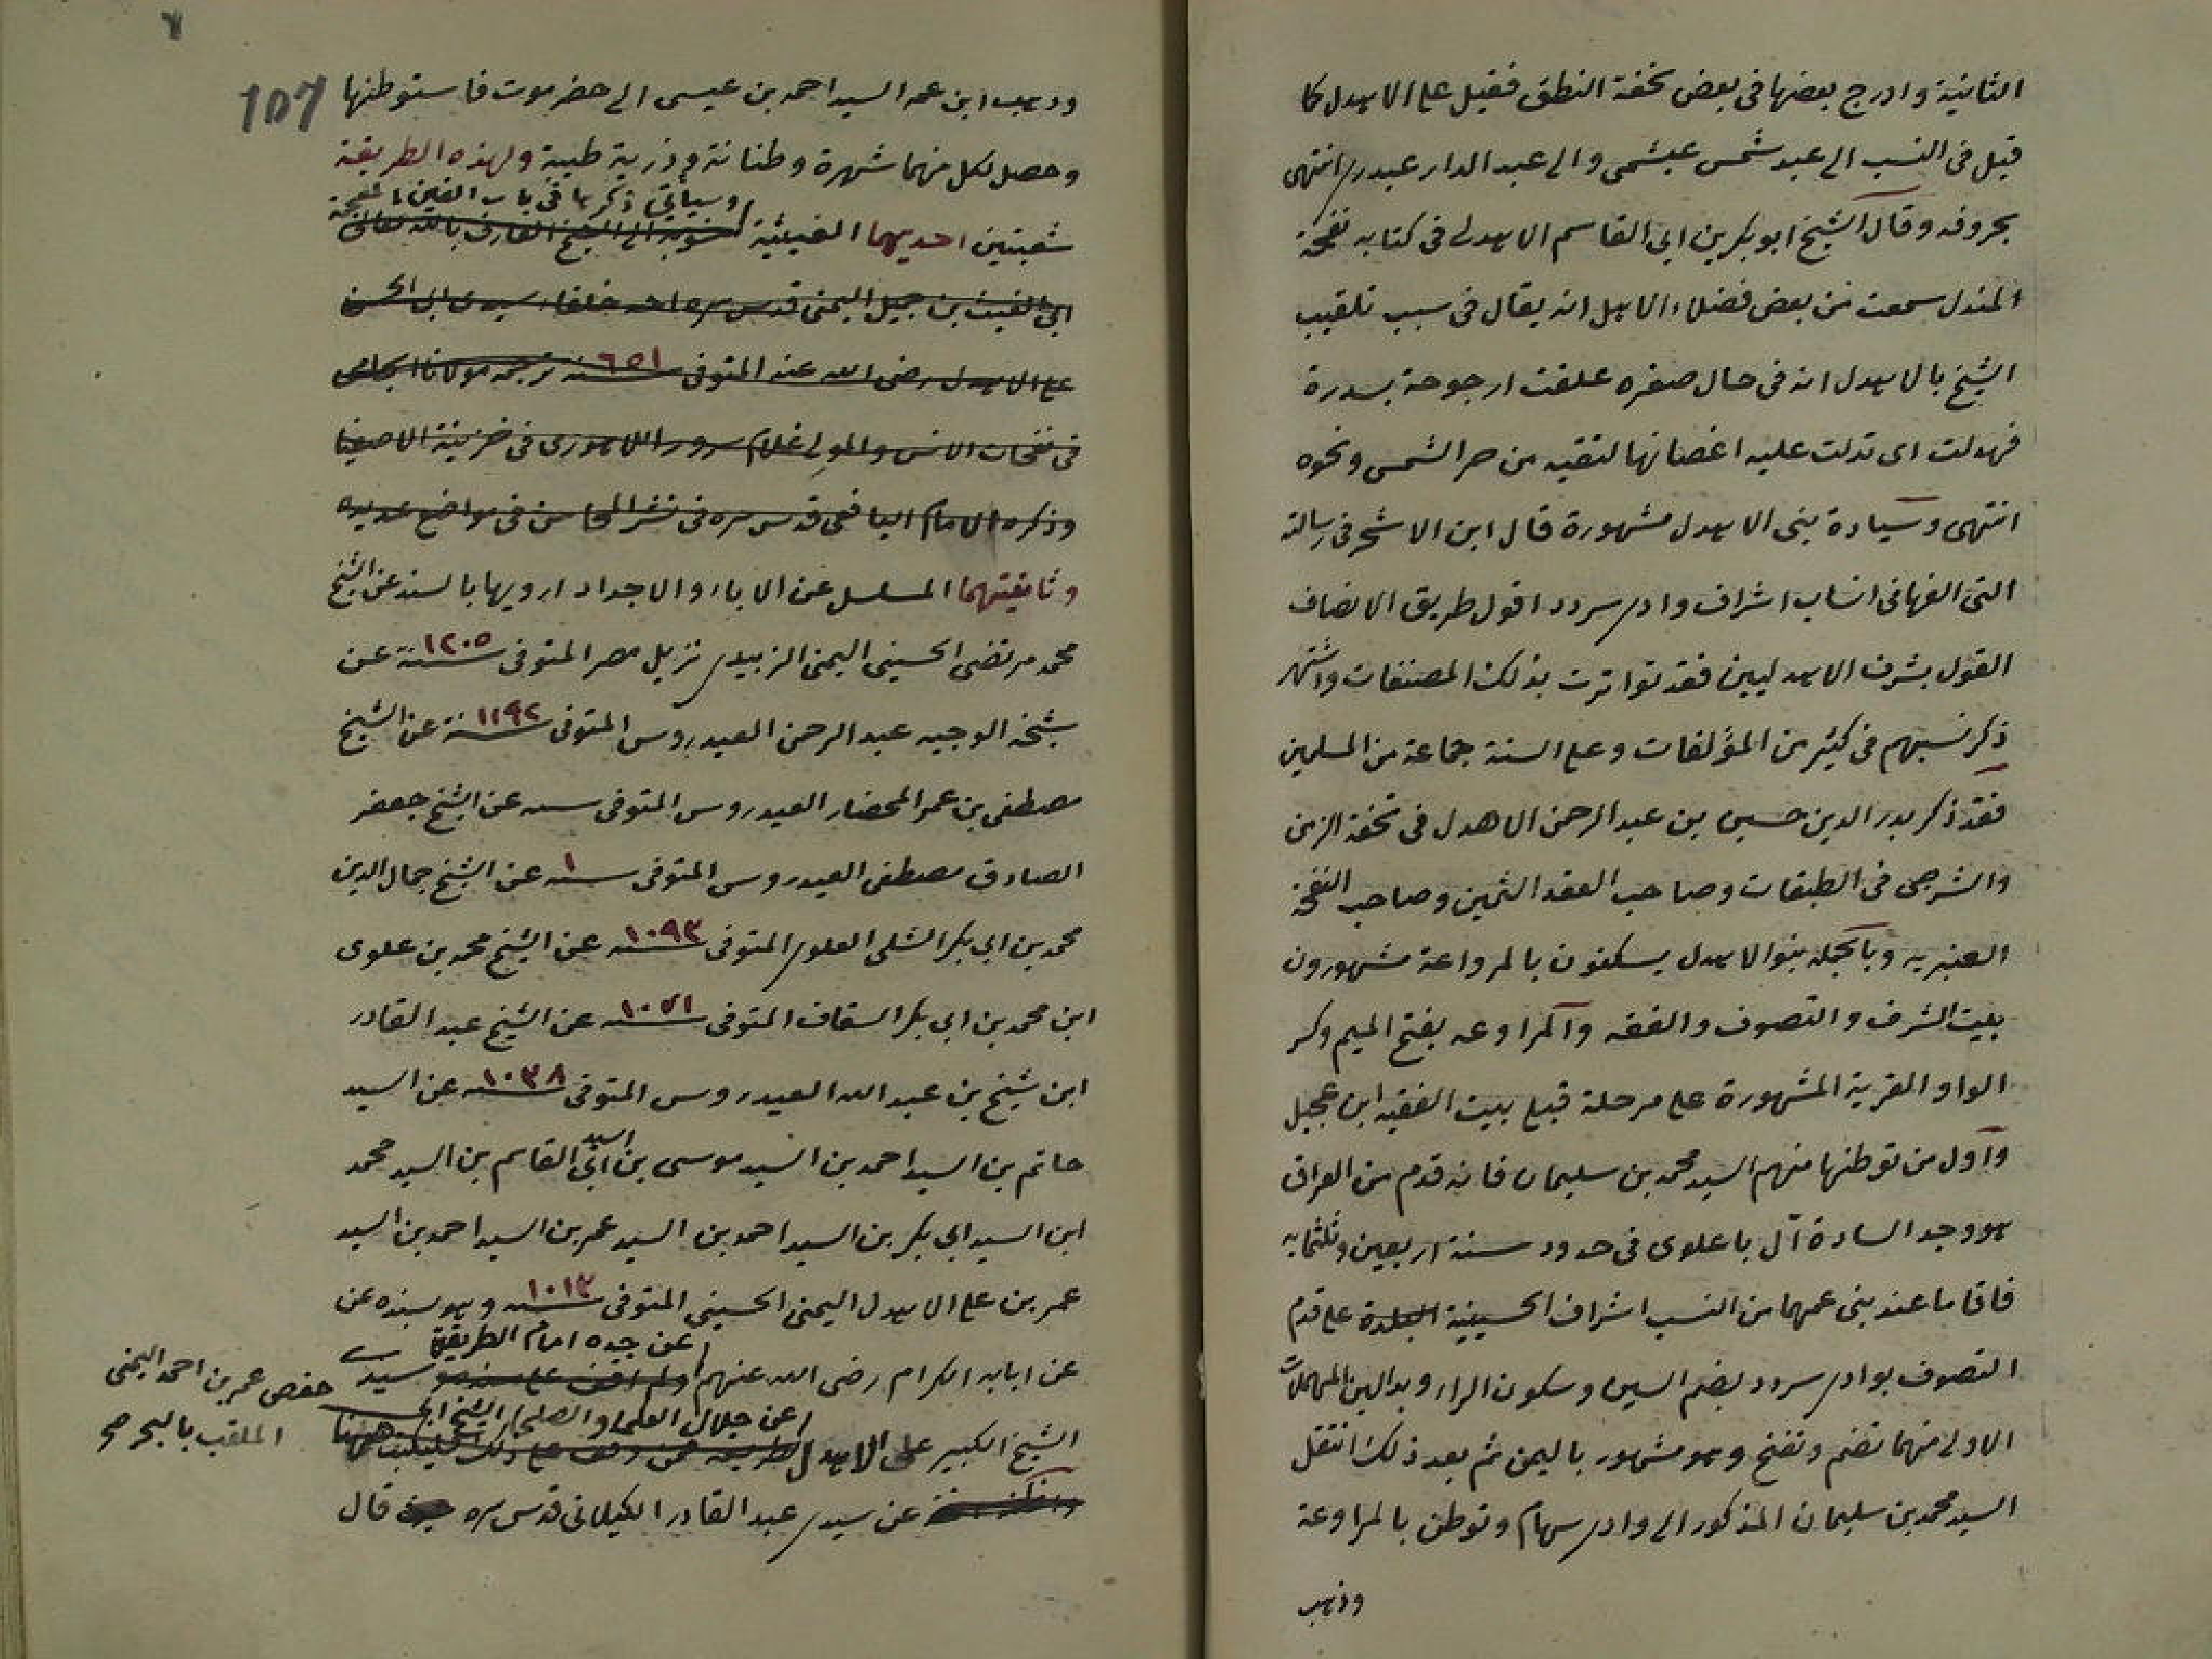 الثانية وادرج بعضها فى بعض نحفة النطق فقيل على الاهدل كما
قيل فى النسب الى عبد شمس عبشمى والى عبد الدار عبدرى انتهى
بحروفه وقال الشيخ ابو بكر بن ابى القاسم الاهدلى فى كتابه نفحة
المندل سمعت من بعض فضلاء الاهل انه يقال فى سبب تلقيب
الشيخ بالاهدل انه فى حال صغره علقت ارجوحة بسدرة
فهدلت اى تدلت عليه اغصانها لتقيه من حر الشمس ونحوه
انتهى وسيادة بنى الاهدل مشهورة قال ابن الاشخر فى رسالته
التى الفها فى انساب اشراف وادى سردد اقول طريق الانصاف
القول بشرف الاهدليين فقد تواترت بذلك المصنفات واشتهر
ذكر نسبهم فى كثير من المؤلفات وعلى السنة جماعة من المسلمين
فقد ذكر بدر الدين حسين بن عبد الرحمن الاهدل فى تحفة الزمن
والشرجى فى الطبقات وصاحب العقد الثمين وصاحب النفحة
العنبريه وبالجمله بنو الاهدل يسكنون بالمرواعة مشهورون
ببيت الشرف والتصوف والفقه والمراوعه بفتح الميم وكسر
الواو القرية المشهورة على مرحلة قبلى بيت الفقيه ابن عجيل
واول من توطنها منهم السيد محمد بن سليمان فانه قدم من العراق
هو وجد السادة آل باعلوى فى حدود سنة اربعين وثلثمايه
فاقاما عند بنى عمهما من النسب اشراف الحسينية البلدة على قدم
التصوف بوادى سردد بضم السين وسكون الراء وبدالين المهملات
الاولى منهما تضم وتفتح وهو مشهور باليمن ثم بعد ذلك انتقل
السيد محمد بن سليمان المذكور الى وادى سهام وتوطن بالمراوعة
وذهب
107
وذهب ابن عمه السيد احمد بن عيسى الى حضرموت فاستوطنها
وحصل لكل منهما شهرة وطنانة وذرية طيبة ولهذه الطريقة
وسيأتى ذكرها فى باب الغين المعجمة
شعبتين احديهما الغيثية منسوبة الى الشيخ العارف بالله تعالى
ابى الغيث بن جميل اليمنى قدس سره احد خلفاء سيدى ابى الحسن
على الاهدل رضى الله عنه المتوفى سنة ٦٥١ ترجمه مولانا الجامى
فى نفحات الانس والمولى غلام سرور اللاهورى فى خزينة الاصفيا
وذكره الامام اليافعى قدس سره فى نشر المحاسن فى مواضع عديده
وثانيتهما المسلسل عن الاباء والاجداد ارويها بالسند عن الشيخ
محمد مرتضى الحسينى اليمنى الزبيدى نزيل مصر المتوفى سنة ١٢٠٥ عن
شيخه الوجيه عبد الرحمن العيدروس المتوفى سنة ١١٩٢ عن الشيخ
مصطفى بن عمر المحضار العيدروس المتوفى سنه عن الشيخ جعفر
الصادق مصطفى العيدروس المتوفى سنه ١ عن الشيخ جمال الدين
محمد بن ابى بكر الشلى العلوى المتوفى سنه ١٠٩٣ عن الشيخ محمد بن علوى
ابن محمد بن ابى بكر السقاف المتوفى سنه ١٠٧١ عن الشيخ عبد القادر
ابن شيخ بن عبد الله العيدروس المتوفى سنه ١٠٣٨ عن السيد
حاتم بن السيد احمد بن السيد موسى بن السيد ابى القاسم بن السيد محمد
ابن السيد ابى بكر بن السيد احمد بن السيد عمر بن السيد احمد بن السيد
عمر بن على الاهدل اليمنى الحسينى المتوفى سنه ١٠١٣ وهو بسنده عن
عن جده امام الطريقة
عن ابايه الكرام رضى الله عنهم ولم اقف على سند سيدى
عن جلال العلما والصلحا الشيخ ابى حفص عمر بن احمد اليمنى
الملقب بالبحر صح
الشيخ الكبير على الاهدل
عن سيدى عبد القادر الكيلانى قدس سره قال